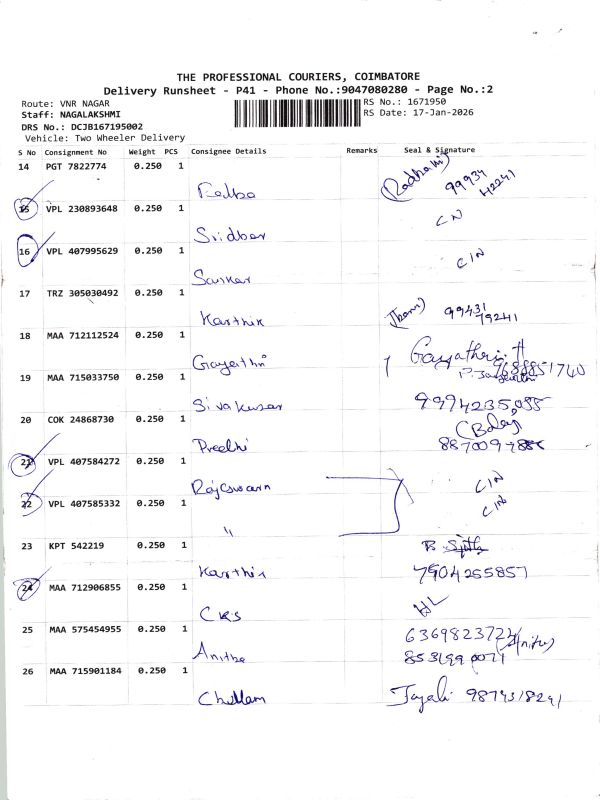 THE PROFESSIONAL COURIERS, COIMBATORE
Delivery Runsheet - P41 - Phone No.:9047080280 - Page No.:2
Route: VNR NAGAR
RS No.: 1671950
Staff: NAGALAKSHMI
RS Date: 17-Jan-2026
DRS No.: DCJB167195002
Vehicle: Two Wheeler Delivery
S No Consignment No Weight PCS Consignee Details Remarks Seal & Signature
14 PGT 7822774 0.250 1 (Radhami) 99934
15 VPL 230893648 0.250 1 CN
Sridhar
16 VPL 407995629 0.250 1 CIN
Sankar
17 TRZ 305030492 0.250 1
Karthik 99431 79241
18 MAA 712112524 0.250 1
Gayathri Gayathri 9688851740
19 MAA 715033750 0.250 1
Sivakumar
20 COK 24868730 0.250 1
Preethi
21 VPL 407584272 0.250 1 CIN
Rajeswarn
22 VPL 407585332 0.250 1 CIN
"
23 KPT 542219 0.250 1
Karthik 7904265857
24 MAA 712906855 0.250 1 HL
CKS
25 MAA 575454955 0.250 1
Anitha (Anitha)
26 MAA 715901184 0.250 1
Chellam 9874318241